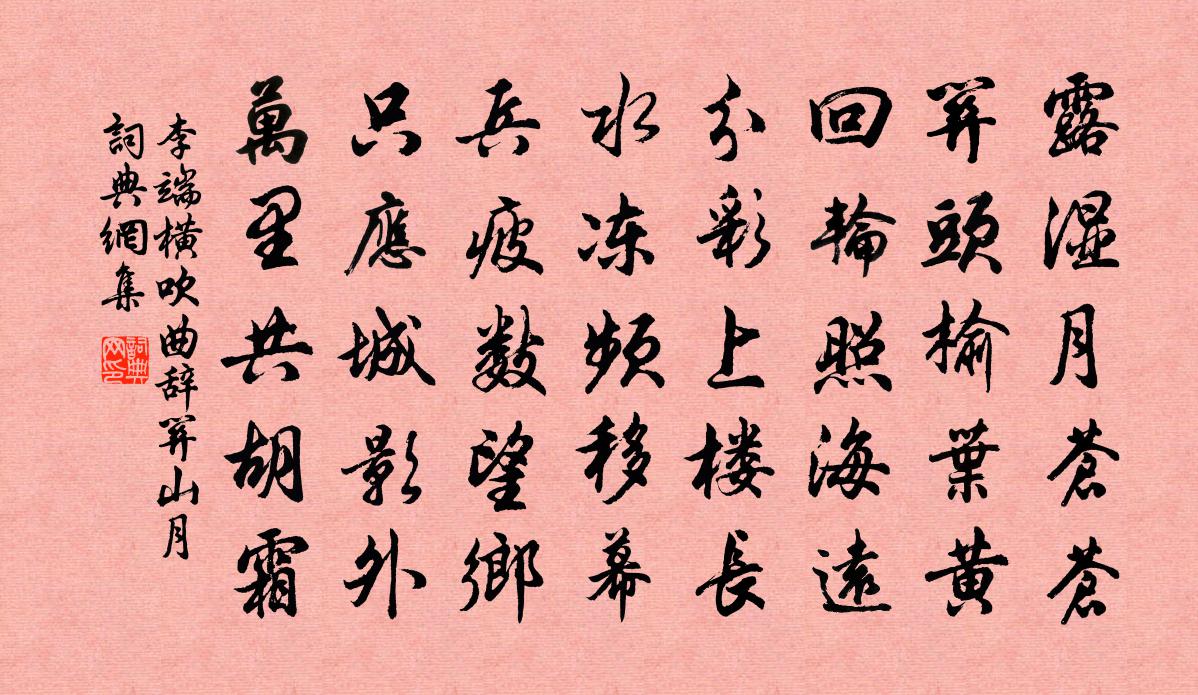 露湿月蒼蒼
関頭榆葉黄
回輪照海遠
分彩上楼長
水冻頻移幕
兵疲数望鄉
只應城影外
萬里共胡霜
李端橫吹曲辞関山月
詞典網集
詞典网印